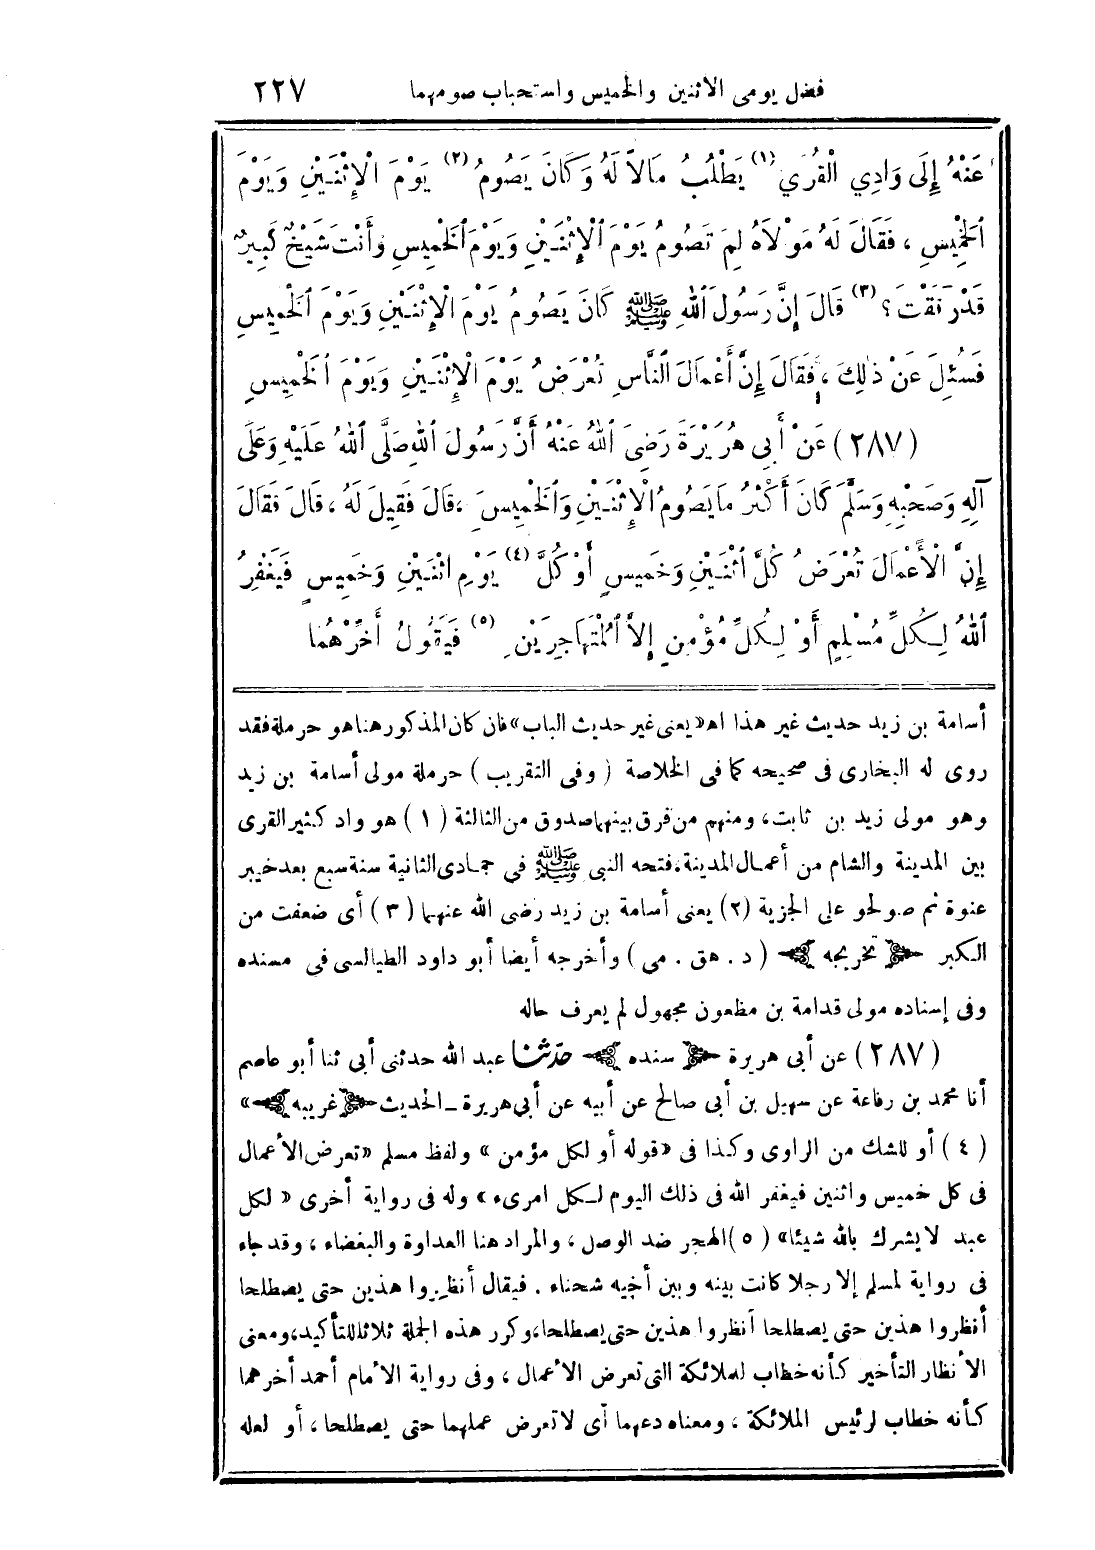 فضل يومى الاثنين والخميس واستحباب صومهما ٢٢٧
عَنْهُ إِلَى وَادِي الْقُرَى (١) يَطْلُبُ مَالاً لَهُ وَكَانَ يَصُومُ (٢) يَوْمَ الْإِثْنَيْنِ وَيَوْمَ
الْخَمِيسِ ، فَقَالَ لَهُ مَوْلَاهُ لِمَ تَصُومُ يَوْمَ الْإِثْنَيْنِ وَيَوْمَ الْخَمِيسِ وَأَنْتَ شَيْخٌ كَبِيرٌ
قَدْ رَقَقْتَ؟ (٣) قَالَ إِنَّ رَسُولَ اللهِ ﷺ كَانَ يَصُومُ يَوْمَ الْإِثْنَيْنِ وَيَوْمَ الْخَمِيسِ
فَسُئِلَ عَنْ ذٰلِكَ ، فَقَالَ إِنَّ أَعْمَالَ النَّاسِ تُعْرَضُ يَوْمَ الْإِثْنَيْنِ وَيَوْمَ الْخَمِيسِ
(٢٨٧) عَنْ أَبِى هُرَيْرَةَ رَضِىَ اللهُ عَنْهُ أَنَّ رَسُولَ اللهِ صَلَّى اللهُ عَلَيْهِ وَعَلَى
آلِهِ وَصَحْبِهِ وَسَلَّمَ كَانَ أَكْثَرُ مَا يَصُومُ الْإِثْنَيْنِ وَالْخَمِيسَ ، قَالَ فَقِيلَ لَهُ ، قَالَ فَقَالَ
إِنَّ الْأَعْمَالَ تُعْرَضُ كُلَّ اثْنَيْنِ وَخَمِيسٍ أَوْ كُلَّ (٤) يَوْمِ اثْنَيْنِ وَخَمِيسٍ فَيَغْفِرُ
اللهُ لِكُلِّ مُسْلِمٍ أَوْ لِكُلِّ مُؤْمِنٍ إِلاَّ الْمُتَهَاجِرَيْنِ (٥) فَيَقُولُ أَخِّرْهُمَا
أسامة بن زيد حديث غير هذا اه «يعنى غير حديث الباب» فان كان المذكور هنا هو حرملة فقد
روى له البخارى فى صحيحه كما فى الخلاصة ( وفى التقريب ) حرملة مولى أسامة بن زيد
وهو مولى زيد بن ثابت، ومنهم من فرق بينهما صدوق من الثالثة ( ١ ) هو واد كثير القرى
بين المدينة والشام من أعمال المدينة، فتحه النبى ﷺ في جمادى الثانية سنة سبع بعد خيبر
عنوة ثم صولحو على الجزية (٢) يعنى أسامة بن زيد رضى الله عنهما ( ٣ ) أى ضعفت من
الكبر ﴿ تخريجه ﴾ ( د . هق . مى ) وأخرجه أيضا أبو داود الطيالسى فى مسنده
وفى إسناده مولى قدامة بن مظعون مجهول لم يعرف حاله
(٢٨٧) عن أبى هريرة ﴿ سنده ﴾ حدّثنا عبد الله حدثنى أبى ثنا أبو عاصم
أنا محمد بن رفاعة عن سهيل بن أبى صالح عن أبيه عن أبى هريرة ـ الحديث ﴿ غريبه ﴾»
( ٤ ) أو للشك من الراوى وكذا فى «قوله أو لكل مؤمن » ولفظ مسلم «تعرض الأعمال
فى كل خميس واثنين فيغفر الله فى ذلك اليوم لكل امرىء» وله فى رواية أخرى « لكل
عبد لا يشرك بالله شيئا» ( ٥ ) الهجر ضد الوصل ، والمراد هنا العداوة والبغضاء ، وقد جاء
فى رواية لمسلم إلا رجلا كانت بينه وبين أخيه شحناء . فيقال أنظروا هذين حتى يصطلحا
أنظروا هذين حتى يصطلحا أنظروا هذين حتى يصطلحا، وكرر هذه الجملة ثلاثا للتأكيد، ومعنى
الأنظار التأخير كأنه خطاب للملائكة التى تعرض الأعمال ، وفى رواية الأمام أحمد أخرهما
كأنه خطاب لرئيس الملائكة ، ومعناه دعهما أى لا تعرض عملهما حتى يصطلحا ، أو لعله